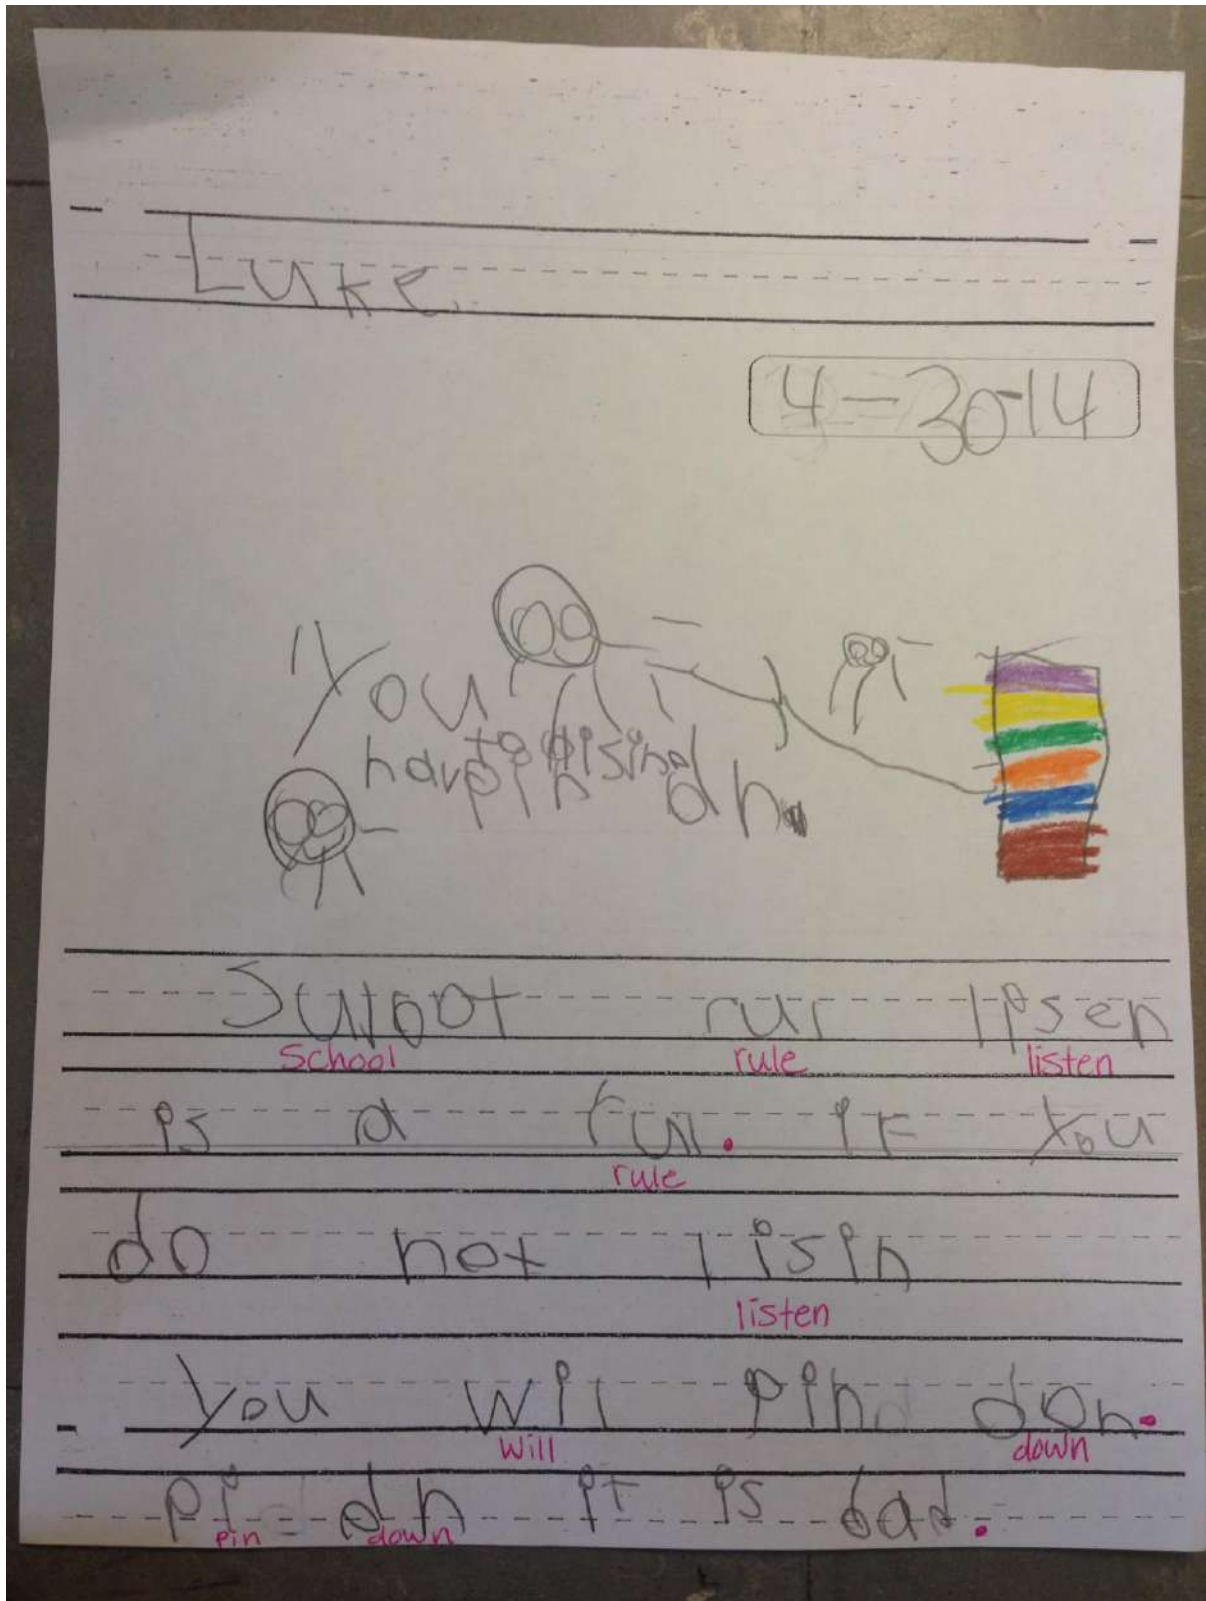 Luke
4-30-14
You
have to
pin dn.
rur lisen
School rule listen
is a rul. if you
rule
do not lisin
listen
you wil pin don.
will down
Pi dn it is bad.
pin down